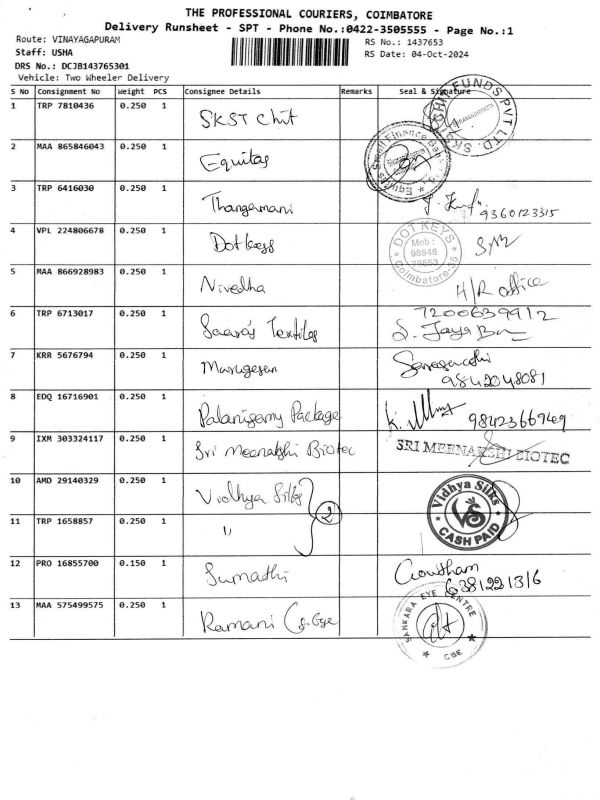 THE PROFESSIONAL COURIERS, COIMBATORE
Delivery Runsheet - SPT - Phone No.:0422-3505555 - Page No.:1
Route: VINAYAGAPURAM
RS No.: 1437653
Staff: USHA
RS Date: 04-Oct-2024
DRS No.: DCJB143765301
Vehicle: Two Wheeler Delivery
S No Consignment No Weight PCS Consignee Details Remarks Seal & Signature
1 TRP 7810436 0.250 1 SKST Chit
SHIT FUNDS PVT LTD. SKS
2 MAA 865846043 0.250 1 Equitas
Equitas Small Finance Bank
3 TRP 6416030 0.250 1 Thangamani 9360123315
4 VPL 224806678 0.250 1 Dot keys
DOT KEYS
Mob :
98946
Coimbatore-35
5 MAA 866928983 0.250 1 Nivedha H/R office
6 TRP 6713017 0.250 1 Textiles 7200639912
S. Jaya
7 KRR 5676794 0.250 1 Murugesan
9842048081
8 EDQ 16716901 0.250 1 Palanisamy Package K. 9842366949
9 IXM 303324117 0.250 1 Sri Meenakshi Biotec SRI MEENAKSHI BIOTEC
10 AMD 29140329 0.250 1 Vidhya Silks 2
Vidhya Silks
VS
CASH PAID
11 TRP 1658857 0.250 1 "
12 PRO 16855700 0.150 1 Sumathi Gowtham
6381221316
13 MAA 575499575 0.250 1 Ramani
SANKARA EYE CENTRE
CBE